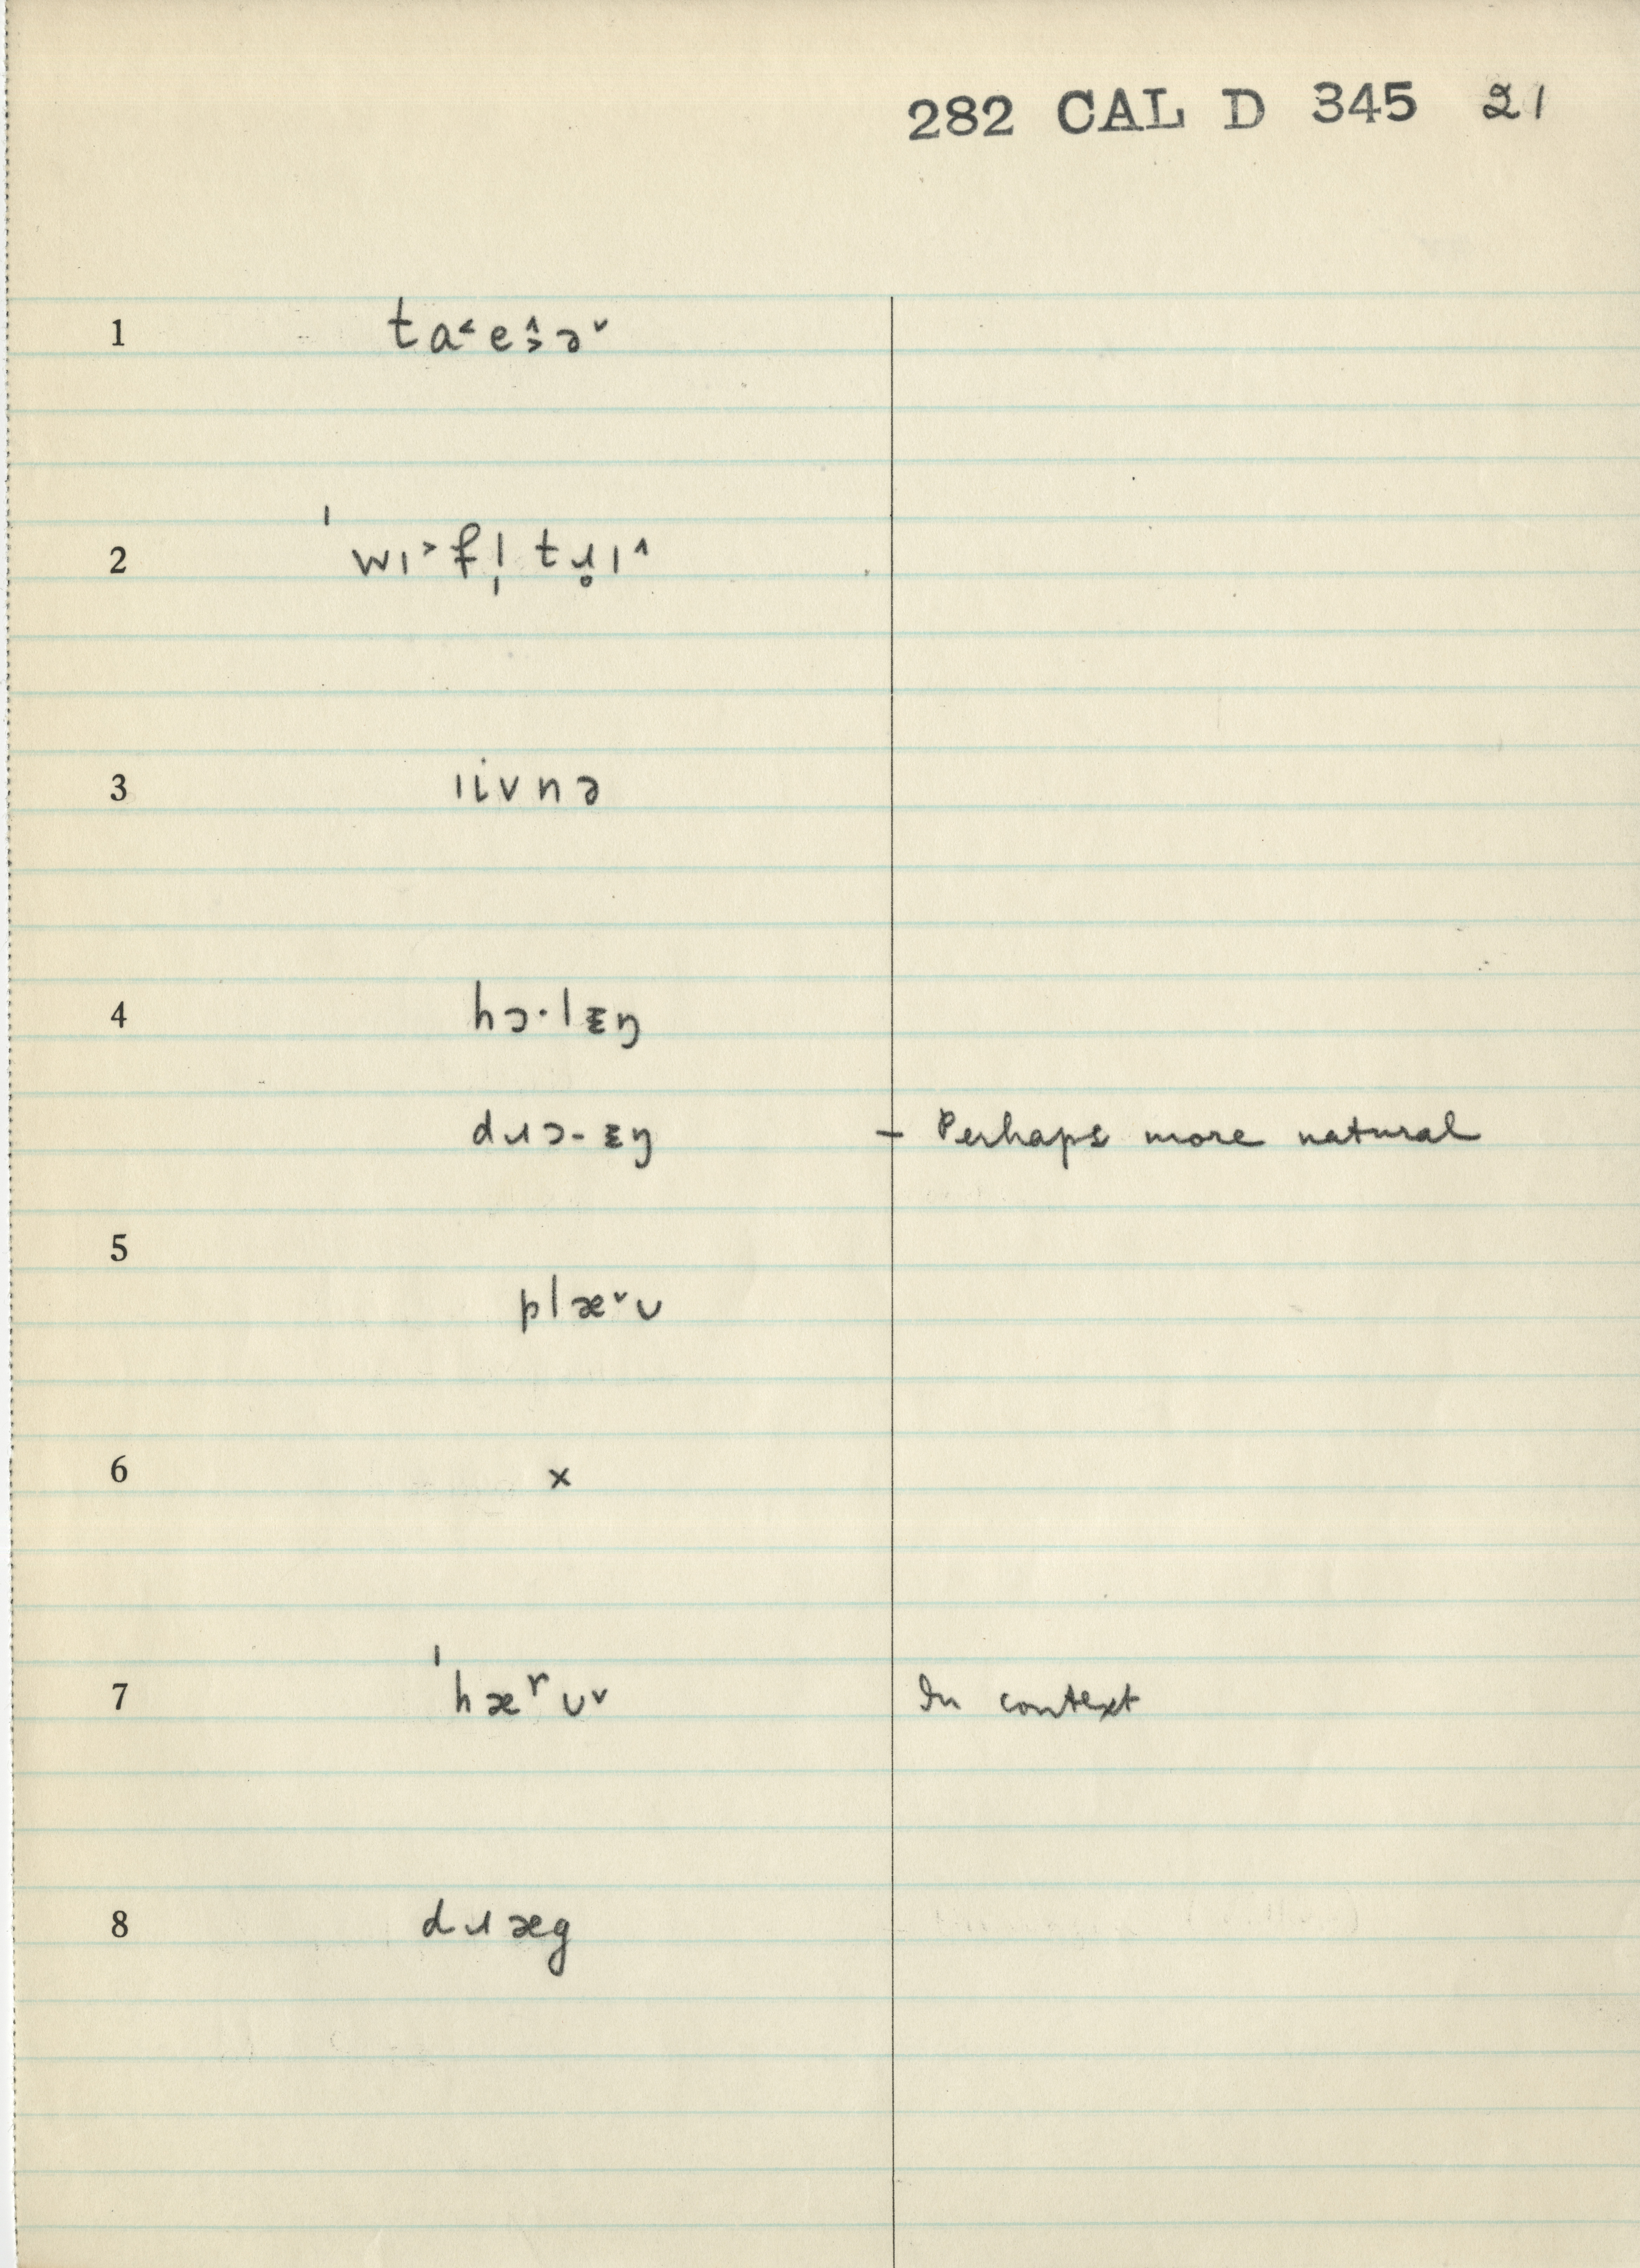 282 CAL D 345 21
1 ta˂e˄˃ə˅
2 ˈwɪ˃fl̩tɹ̥ɪ˄
3 ɪivnə
4 hɔ·lɪŋ
dɹɔ-ɪŋ – Perhaps more natural
5
plæ˅ʊ
6 x
7 ˈhærʊ˅ In context
8 dɹæg